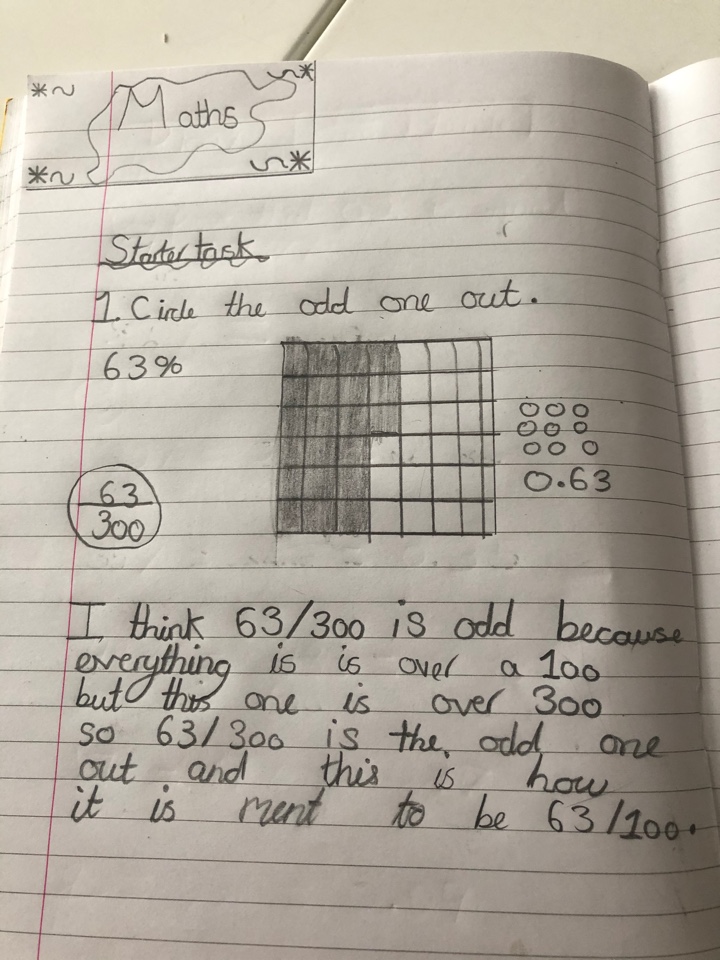 Maths
Starter task
1. Circle the odd one out.
63%
0.63
63
300
I think 63/300 is odd because
everything is is over a 100
but this one is over 300
so 63/300 is the odd one
out and this is how
it is ment to be 63/100.